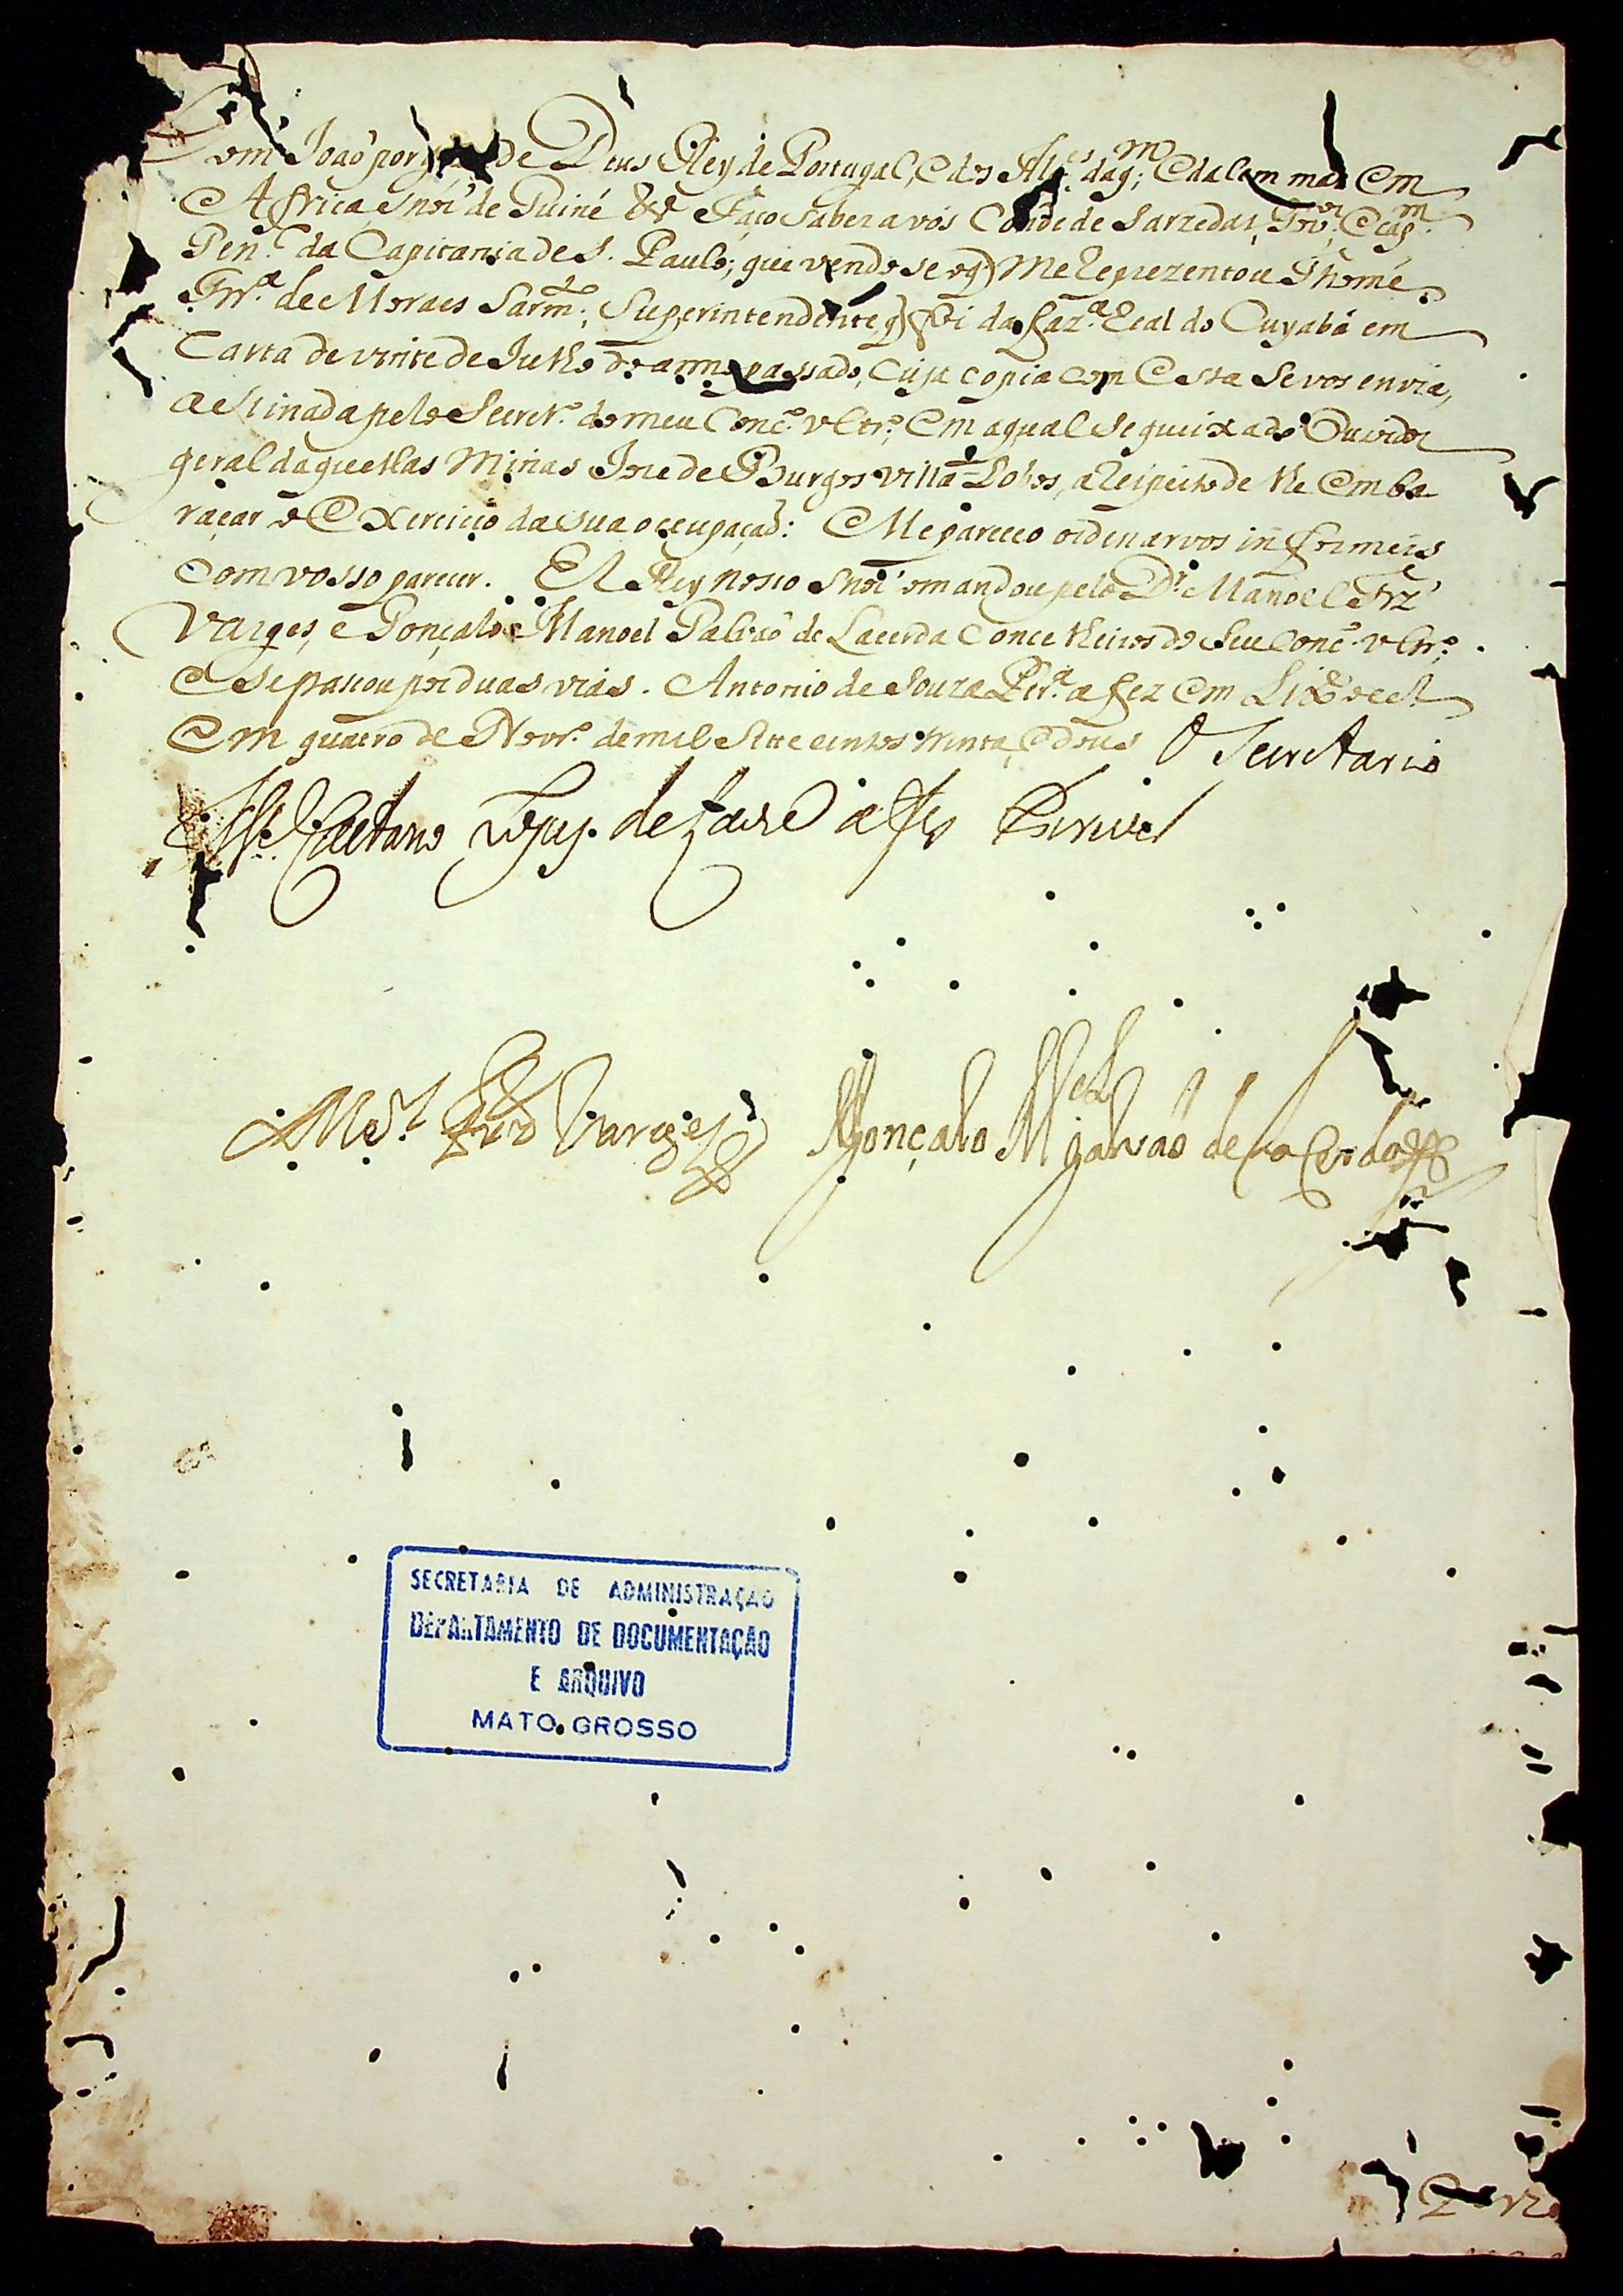 Dom Joaõ por graça de Deus Rey de Portugal, e dos Alg.es daq.m, e dalem mar em
Africa Snor' de Guiné &.ª Faço saber a vós Conde de Sarzedas, Gov.or, e cap.m
Gen.al da Capitania de S. Paulo; que vendose o q' me reprezentou Thomé
Frr.ª de Moraes Sarm.to, Superintendente q' foi da faz.ª Real do Cuyabá em
Carta de vinte de Julho do anno passado, cuja copia com esta se vos envia,
assinada pelo Secretr.º do meu Conc.º Ultr.º, em a qual se queixa do Ouvidor
geral daquellas Minas Joze de Burgos Villa Lobos, a respeito de lhe emba
raçar o exercicio da sua occupaçaõ: Me pareceo ordenarvos informeis
com vosso parecer. El Rey nosso Snor' o mandou pelo D.r Manoel Frz'
Varges, e Gonçalo Manoel Galvaõ de Lacerda Concelheiros do seu Conc.º Ultr.º
e se passou por duas vias. Antonio de Souza Per.ª a fez em Lix.ª occ.al
em quatro de Novr.º de mil sete centos trinta, e dous O Secretario
M.el Caetano Lopes de Lavre a fes escrever
M.el Frz Varges Gonçalo M.el Galvaõ de Lacerda
SECRETARIA DE ADMINISTRAÇÃO
DEPARTAMENTO DE DOCUMENTAÇÃO
E ARQUIVO
MATO GROSSO